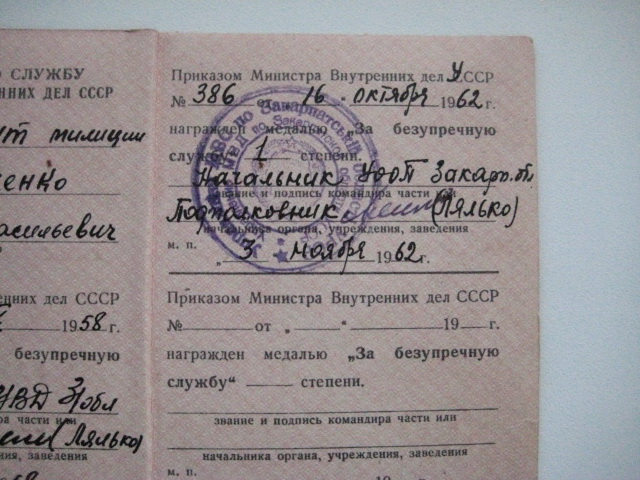 СЛУЖБУ
ДЕЛ СССР
милиции
енко
асильевич
дел СССР
1958 г.
безупречную
УВД З/обл
(Лялько)
заведения
Приказом Министра Внутренних дел УССР
№ 386 от 16 октября 1962 г.
награжден медалью „За безупречную
службу“ 1 степени.
Начальник УООП Закарп. обл
звание и подпись командира части или
Подполковник (Лялько)
начальника органа, учреждения, заведения
м. п. „ 3 ноября 1962 г.
Приказом Министра Внутренних дел СССР
№ от „ “ 19 г.
награжден медалью „За безупречную
службу“ степени.
звание и подпись командира части или
начальника органа, учреждения, заведения
м. п.